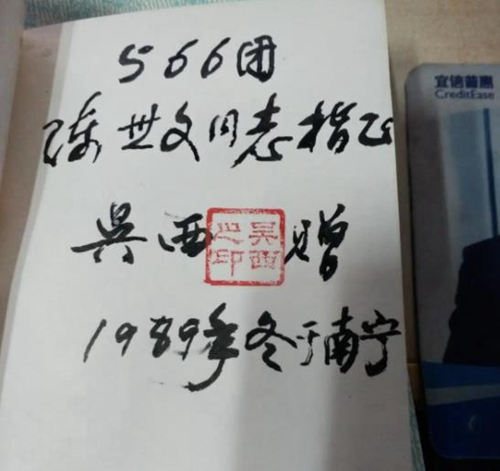 566团
陈世文同志指正
吴西 赠
吴西之印
1989年冬于南宁
宜信普惠
CreditEase